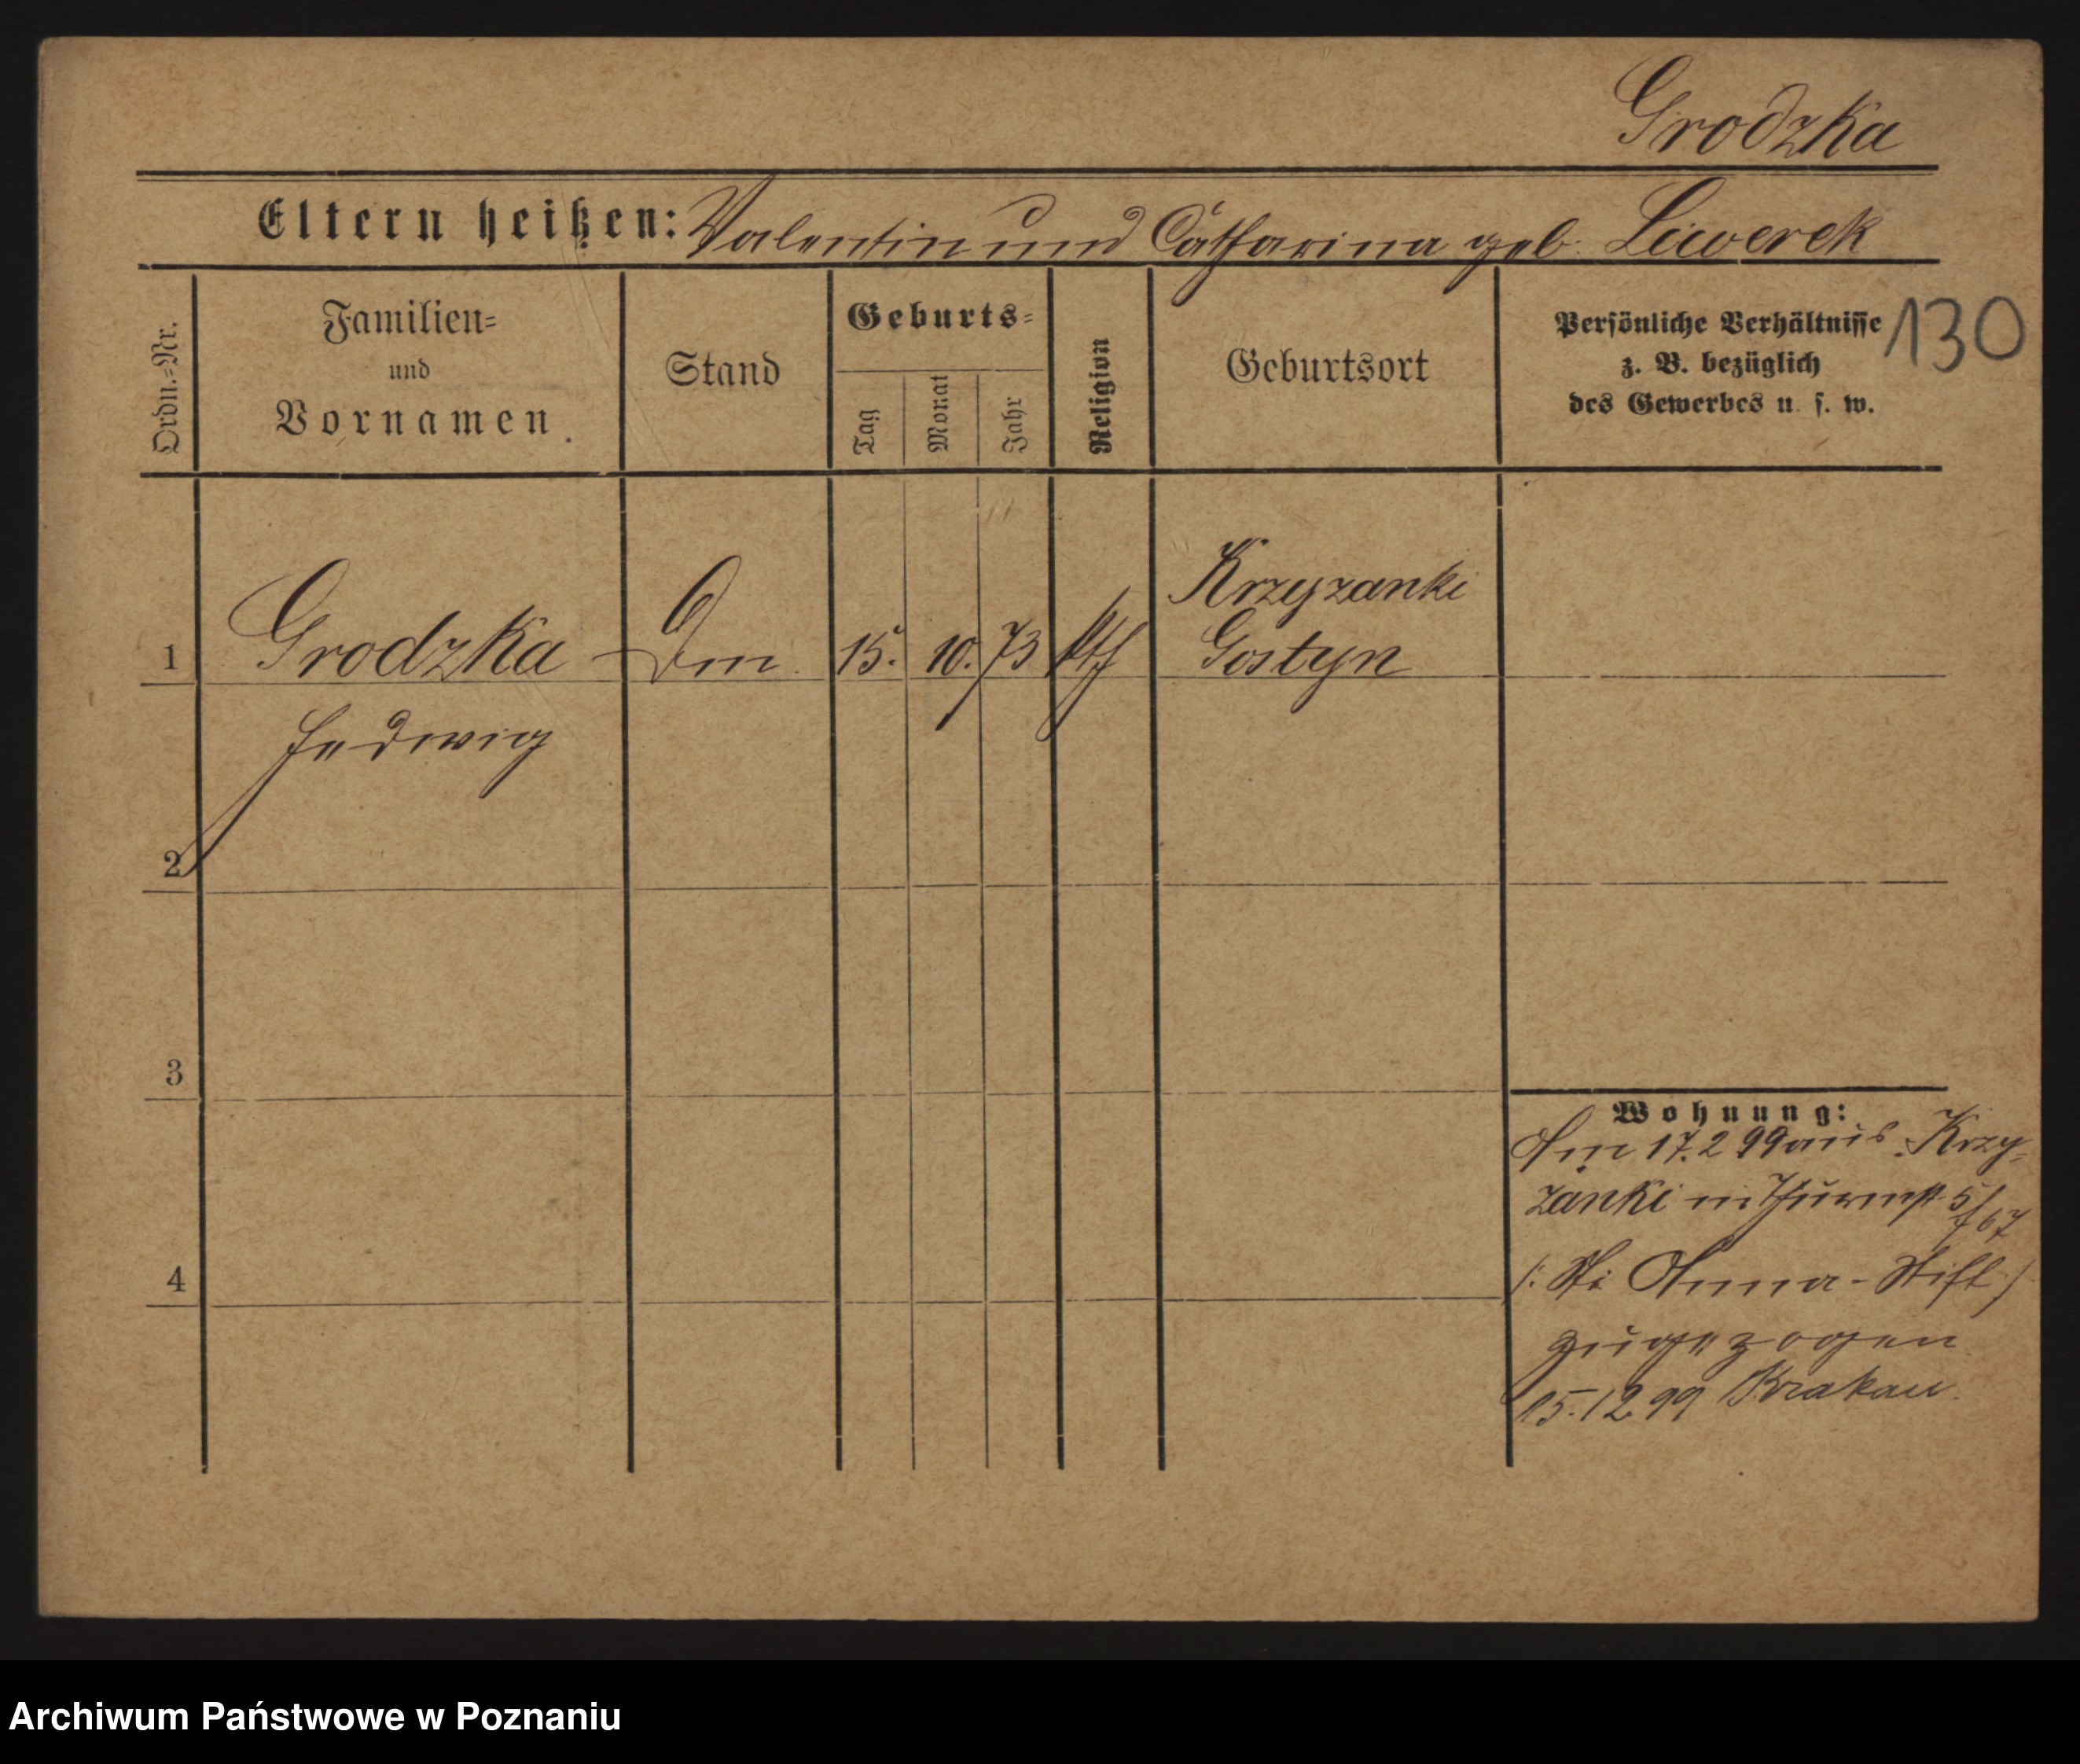 Grodzka
Eltern heißen: Valentin und Catharina geb. Liwerek
130
Ordn.=Nr.
Familien=
und
Vornamen.
Stand
Geburts=
Tag
Monat
Jahr
Religion
Geburtsort
Persönliche Verhältnisse
z. B. bezüglich
des Gewerbes u. s. w.
Krzyzanki
1 Grodzka 15. 10. 73 kth Gostyn
Hedwig
2
3
4
Wohnung:
Am 17.2 99 aus Krzy=
zanki n. Thurmst. 5/67
(: St. Anna-Stift :)
zugezogen.
15.12.99 Krakau.
Archiwum Państwowe w Poznaniu